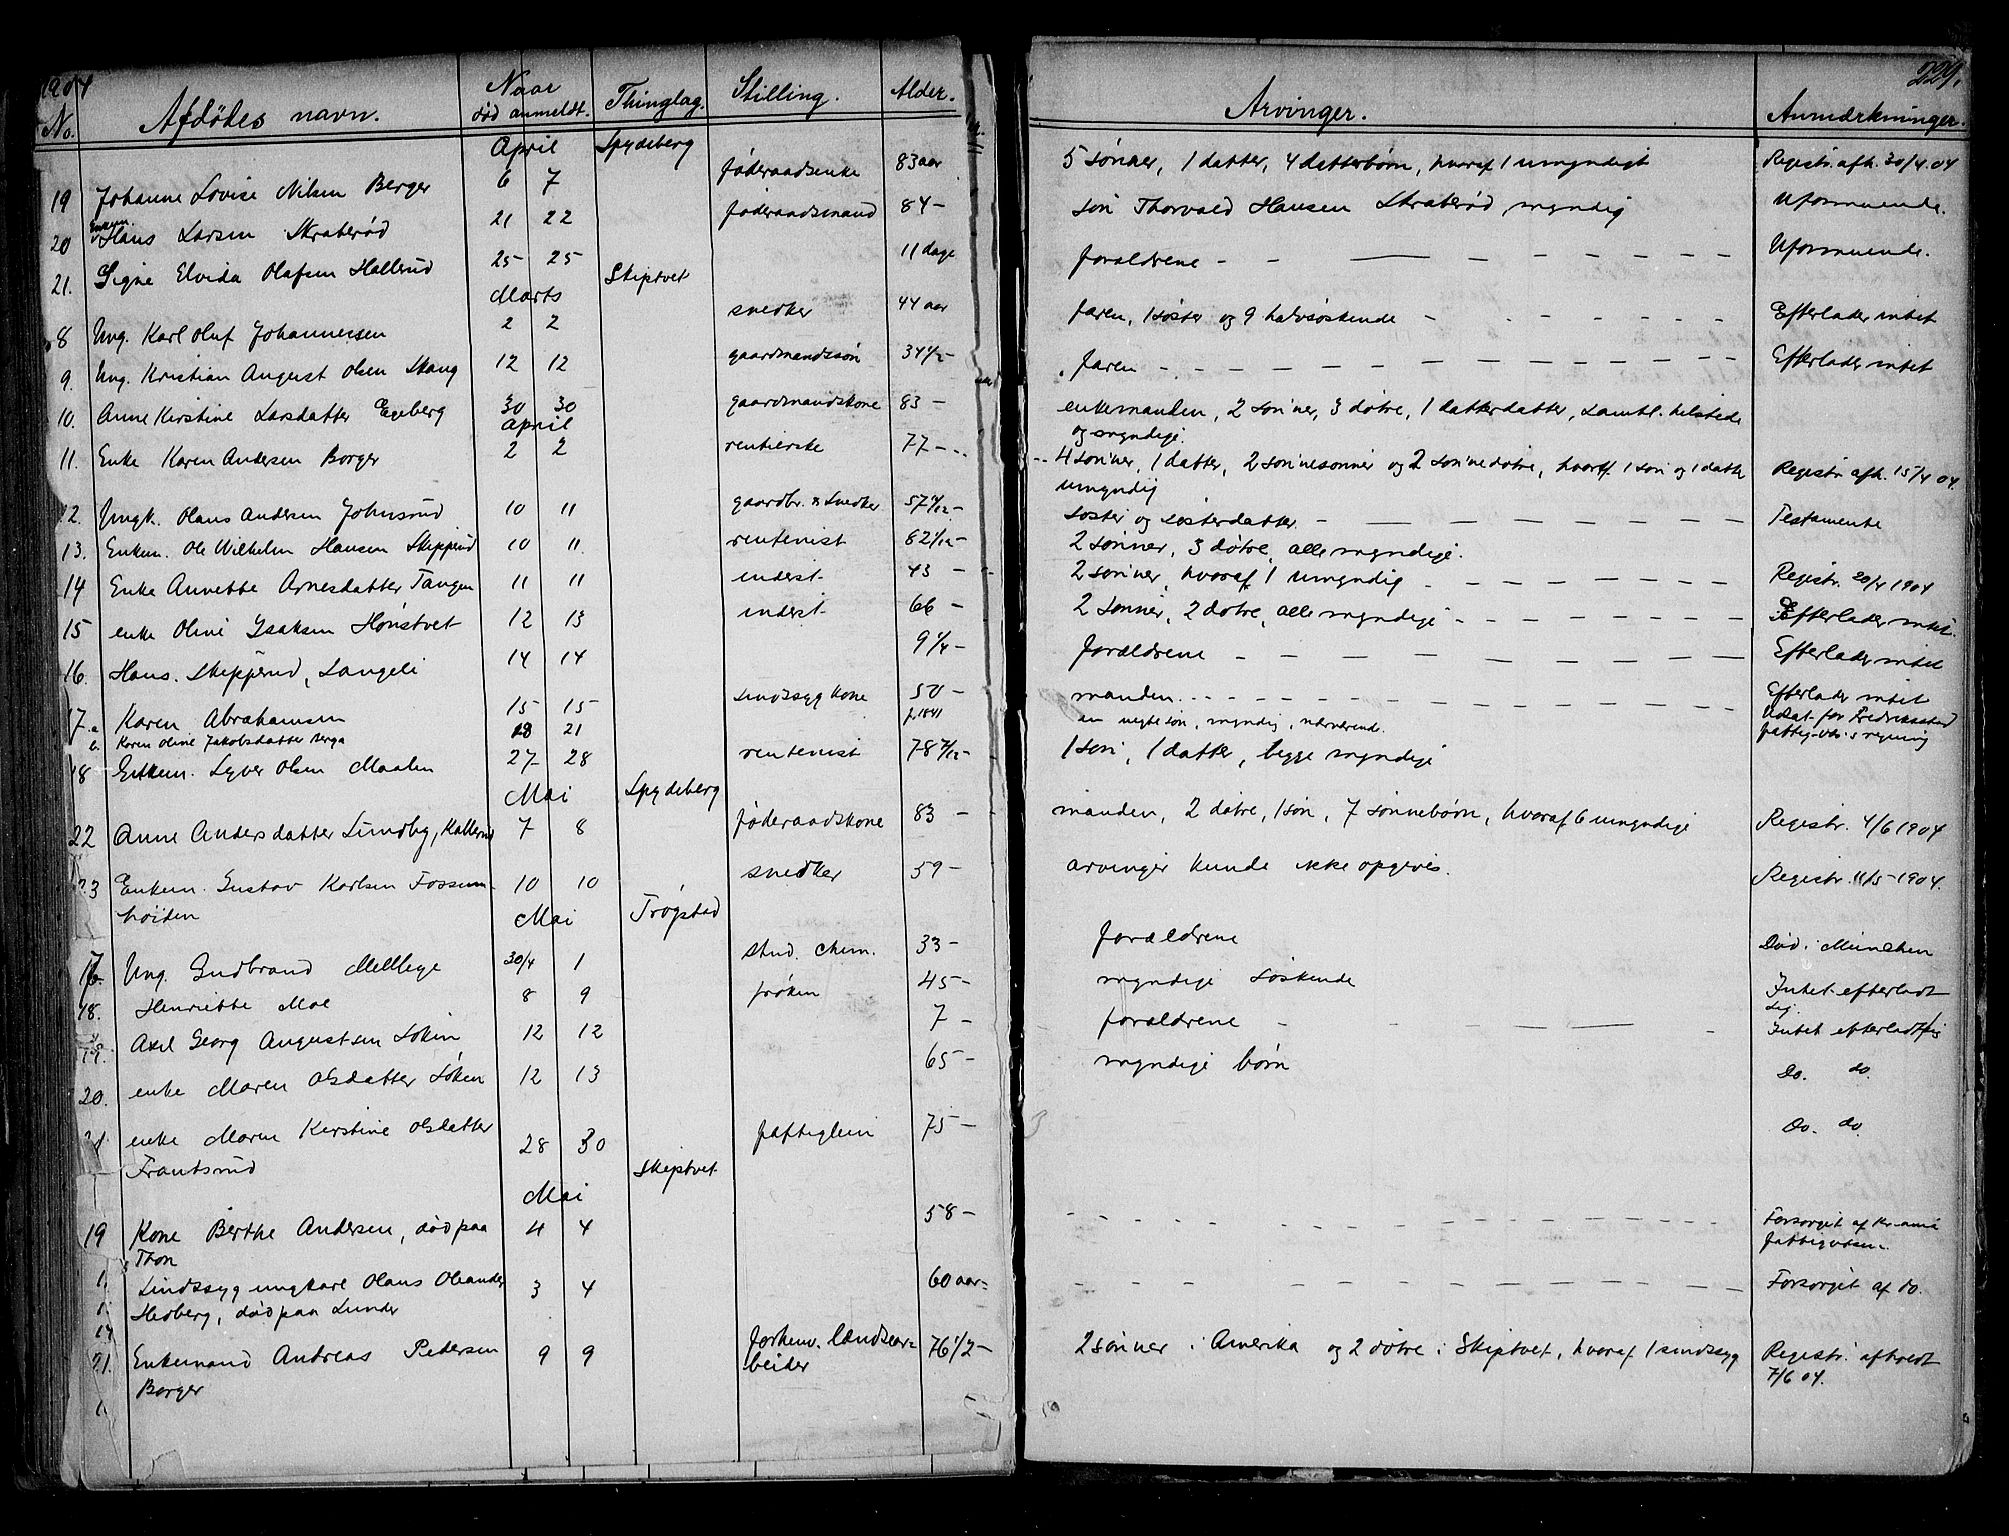 1904
229.
No. Afdödes navn. Naar död anmeldt. Thinglag. Stilling. Alder. Arvinger. Anmærkninger.
April Spydeberg
19 Johanne Lovise Nilsen Berger 6 7 föderaadsenke 83 aar 5 sönner, 1 datter, 4 datterbörn, hvoraf 1 umyndigt Registr. afh. 30/4.04
20 Enkem. Hans Larsen Skraterød 21 22 föderaadsmand 84 - sön Thorvald Hansen Skraterød myndig Uformuende.
21. Signe Elvida Olafsen Hallerud 25 25 11 dage forældrene - - - - Uformuende.
Marts Skiptvet
8 Ung. Karl Oluf Johannessen 2 2 snedker 44 aar faren, 1 söster og 9 halvsöskende - - - Efterlader intet
9. Ung. Kristian August Olsen Skaug 12 12 gaardmandssön 34 1/2 - faren - - - - Efterlader intet
10. Anne Kirstine Larsdatter Egeberg 30 30 gaardmandskone 83 - enkemanden, 2 sönner, 3 dötre, 1 datterdatter, samtl. tilstede
og myndige.
April
11. Enke Karen Andersen Borger 2 2 rentierske 77 - 4 sönner, 1 datter, 2 sönnesönner og 2 sönnedötre, hvoraf 1 sön og 1 datter Registr. afh. 15/4 04.
umyndig
12. Ungk. Olaus Andersen Johnsrud 10 11 gaardbr. & snedker 57 söster og sösterdatter - - - Testamente
13. Enkem. Ole Wilhelm Hansen Skipperud 10 11. rentenist 62 2 sönner, 3 dötre, alle myndige.
14 Enke Annette Arnesdatter Tangen 11 11 inderst 43 - 2 sönner, hvoraf 1 umyndig - - - Registr. 20/4 1904
15 enke Oline Isaksen Hönstvet 12 13 inderst 66 - 2 sönner, 2 dötre, alle myndige - - - Efterlader intet.
16. Hans Skipperud, Langeli 14 14 9 1/4 - forældrene - - - Efterlader intet
17. a Karen Abrahamsen 15 15 sindssyg kone 50 - manden - - - Efterlader intet
b. Karen Oline Jakobsdatter Berga 18 21 f. 1841 en uegte sön, myndig, nærværende. Udsat for Fredriksstad
fattigvæs's regning
18 Enkem. Syver Olsen Maalen 27 28 rentenist 78 7/12 - 1 sön, 1 datter, begge myndige
Mai Spydeberg
22 Anne Andersdatter Lundby, Kallerud 7 8 föderaadskone 83 - manden, 2 dötre, 1 sön, 7 sönnebörn, hvoraf 6 umyndige Registr. 4/6 1904
23 Enkem. Gustav Karlsen Fossum- 10 10 snedker 59 - arvinger kunde ikke opgives. Registr. 11/5 - 1904.
höiden
Mai Trögstad
17. Ung. Gudbrand Mellege 30/4 1 stud. chem. 33 - forældrene Död i München
18. Henriette Moe 8 9 fröken 45 - myndige söskende Intet efterladt
sig.
19. Axel Georg Augustsen Søkin 12 12 7 - forældrene - - - Intet efterladt sig
20. enke Maren Olsdatter Søken 12 13 65 - myndige börn Do. do.
21 enke Maren Kirstine Olsdatter 28 30 fattiglem 75 - Do. do.
Frantsrud
Mai Skiptvet
19 Kone Berthe Andersen, död paa 4 4 58 - - - - Forsørget af Kr.ania
Thon fattigvæsen.
Sindssyg ungkarl Olaus Oleander 3 4 60 aar - - - - Forsørget af do.
Hedberg, död paa Lunder
21. Enkemand Andreas Pedersen 9 9 forhenv. landsear- 76 1/2 - 2 sönner i Amerika og 2 dötre i Skiptvet, hvoraf 1 sindssyg Registr. afholdt
Borger beider 7/6 04.